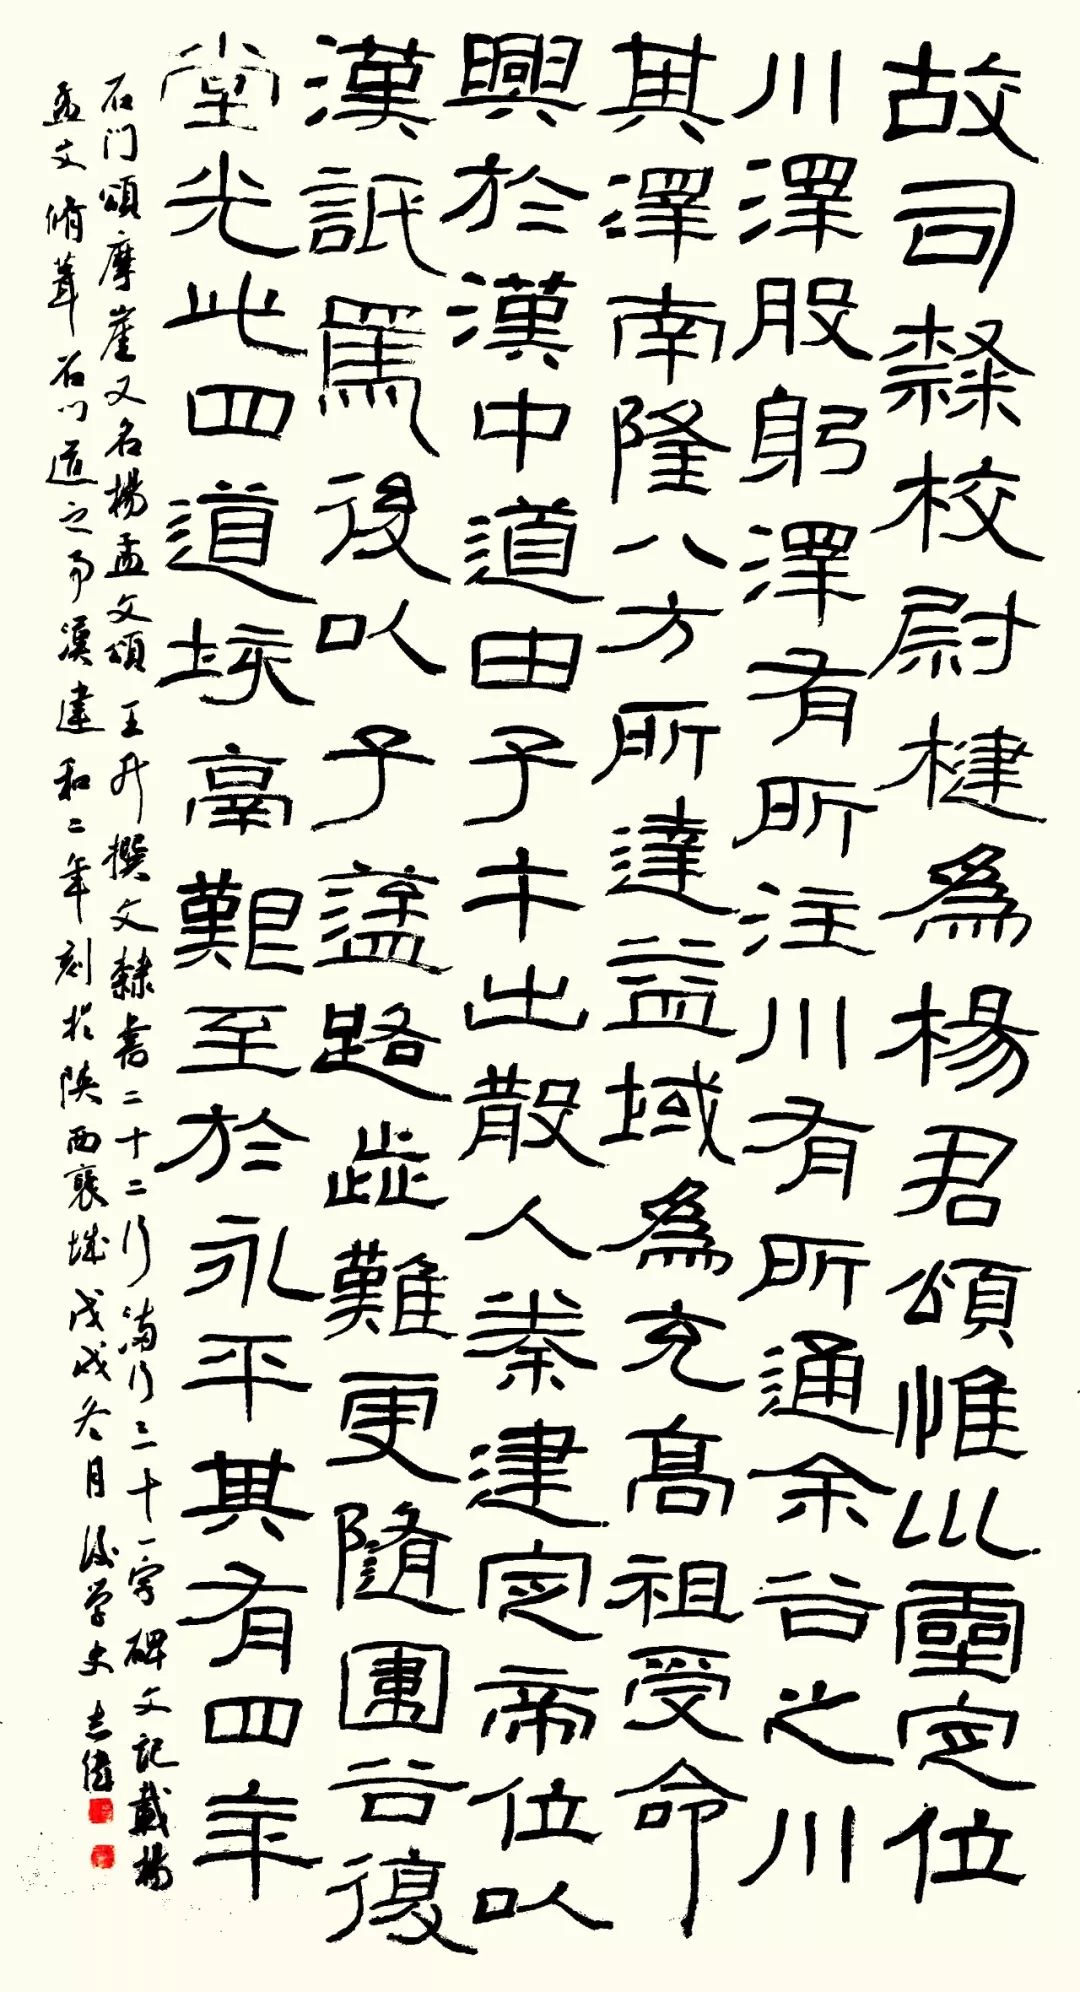 故司隸校尉楗爲楊君頌惟巛靈定位
川澤股躬澤有所注川有所通余谷之川
其澤南隆八方所達益域爲充高祖受命
興於漢中道由子午出散入秦建定帝位以
漢詆焉後以子塗路歰難更隨圍谷復
堂光此四道垓鬲艱至於永平其有四年
石门頌摩崖又名楊孟文頌王升撰文隸書二十二行滿行三十一字碑文記載楊
孟文脩葺石门道之事漢建和二年刻於陝西褒城戊戌冬月後學史志偉